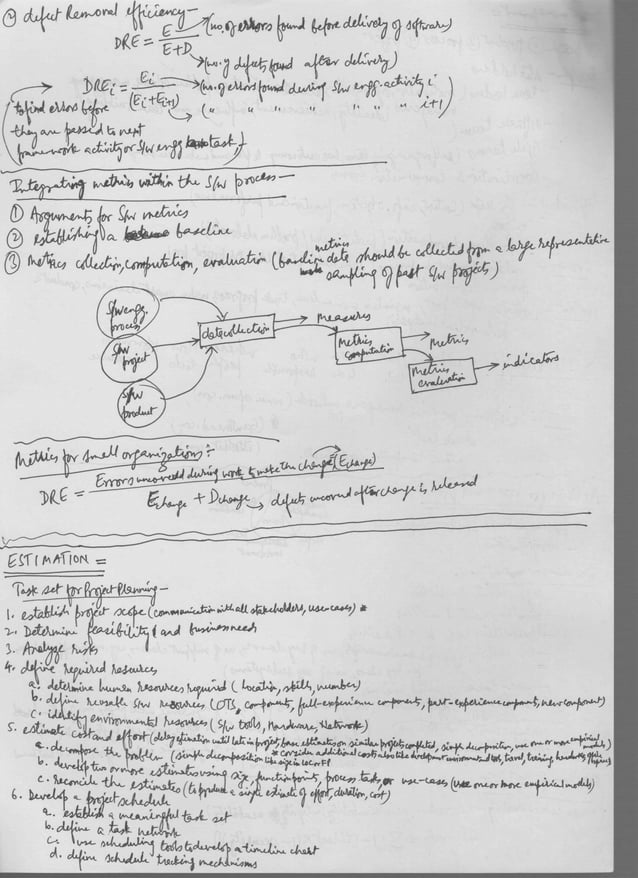 ② defect Removal efficiency -
DRE = E / E+D
(no. of errors found before delivery of software)
(no. of defects found after delivery)
DREi = Ei / (Ei + Ei+1)
(no. of errors found during S/w engg. activity i
( " " " " " " " i+1)
to find errors before
they are passed to next
framework activity or S/w engg task
Integrating metrics within the S/w process -
① Arguments for S/w metrics
② establishing a baseline
③ metrics collection, computation, evaluation (baseline metrics data should be collected from a large representative
sampling of past S/w projects)
S/w engg. process
S/w project
S/w product
data collection
measures
Metrics computation
Metrics
Metrics evaluation
indicators
Metrics for small organizations :-
DRE = Errors uncovered during work to make the change (Echange) / Echange + Dchange
defects uncovered after change is released
ESTIMATION =
Task set for Project Planning -
1. establish project scope (communication with all stakeholders, use-cases) *
2. Determine feasibility and business needs
3. Analyze risks
4. define required resources
a. determine human resources required (Location, skills, number)
b. define reusable S/w resources (OTS components, full-experience components, part-experience components, new component)
c. identify environmental resources (S/w tools, Hardware, Network)
5. estimate cost and effort (delay estimation until late in project, base estimates on similar projects completed, simple decomposition, use one or more empirical models)
* consider additional costs also like development environment and tools, travel, training, hardware
a. decompose the problem (simple decomposition like size in LOC or FP)
b. develop two or more estimates using size, function points, process tasks or use-cases (use one or more empirical models)
c. reconcile the estimates (to produce a single estimate of effort, duration, cost)
6. Develop a project schedule
a. establish a meaningful task set
b. define a task network
c. use scheduling tools to develop a timeline chart
d. define schedule tracking mechanisms